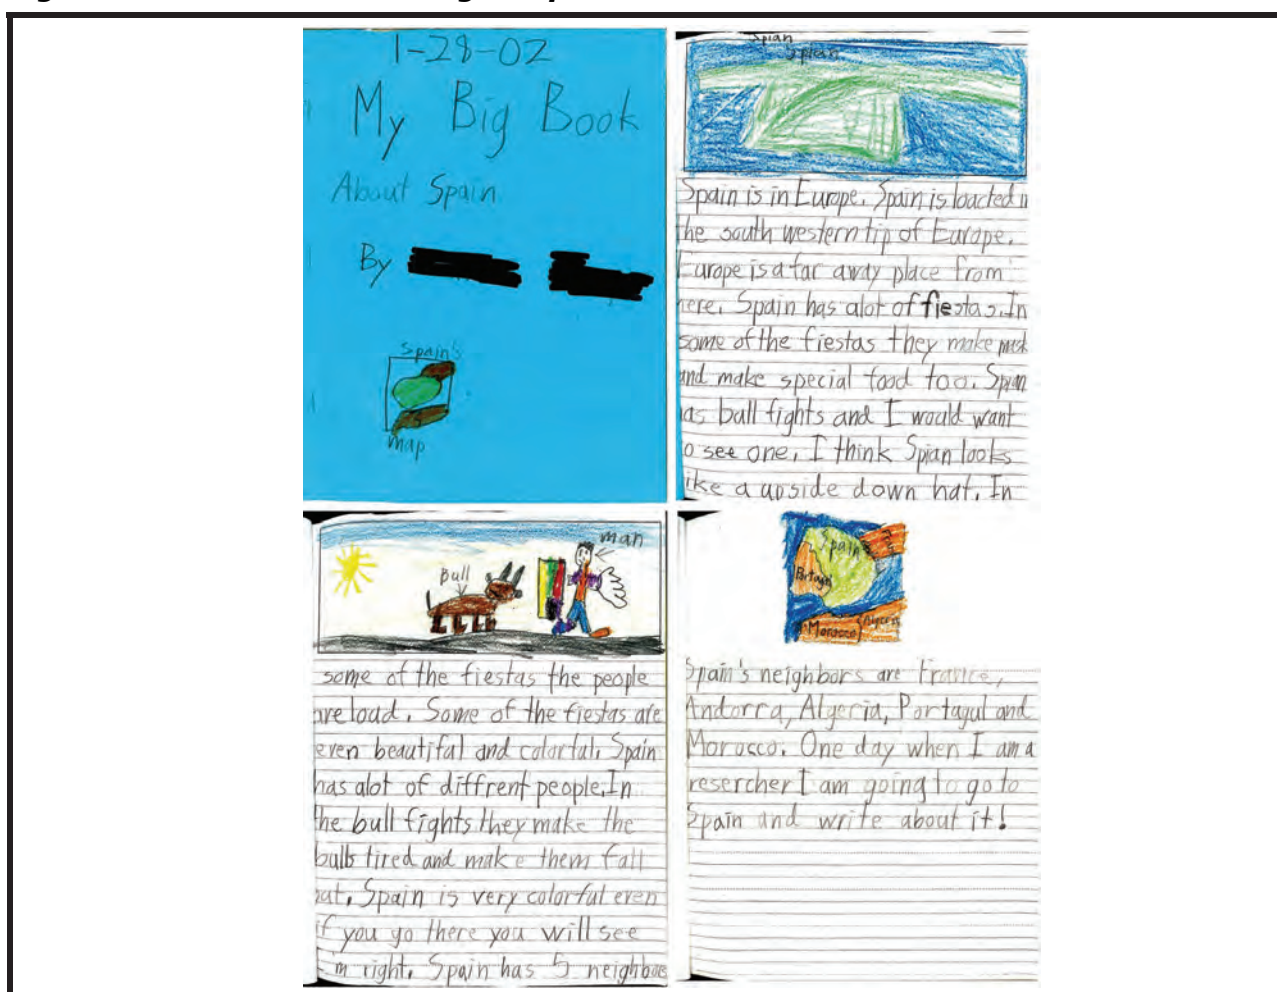 1-28-02
My Big Book
About Spain
By
Spain's
map
Spian
Spain is in Europe. Spain is loacted
the south western tip of Europe.
Europe is a far away place from
here. Spain has alot of fiestas. In
some of the fiestas they make
and make special food too. Spian
has bull fights and I would want
to see one. I think Spian looks
like a upside down hat. In
man
Bull
some of the fiestas the people
are load. Some of the fiestas are
even beautiful and colorful. Spain
has alot of diffrent people. In
the bull fights they make the
bulls tired and make them fall
out. Spain is very colorful even
if you go there you will see
I'm right. Spain has 5 neighbors
Spain
Morocco
Spain's neighbors are France,
Andorra, Algeria, Portagul and
Morocco. One day when I am a
resercher I am going to go to
Spain and write about it!